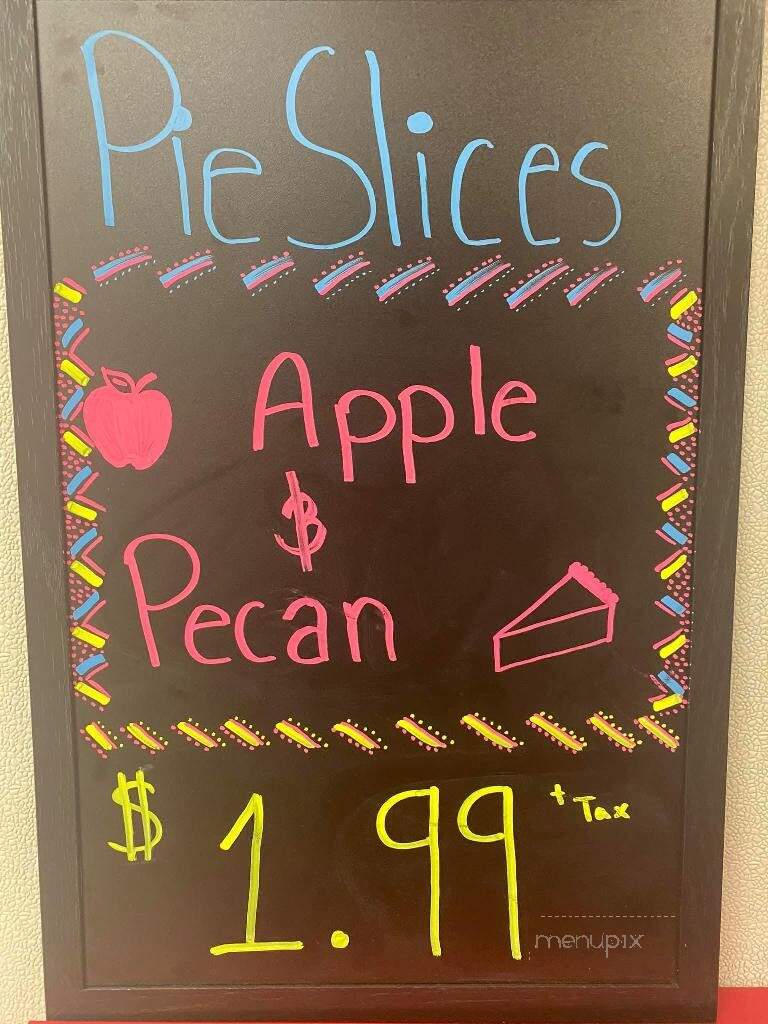 Pie Slices
Apple
&
Pecan
$ 1.99 + Tax
menupix